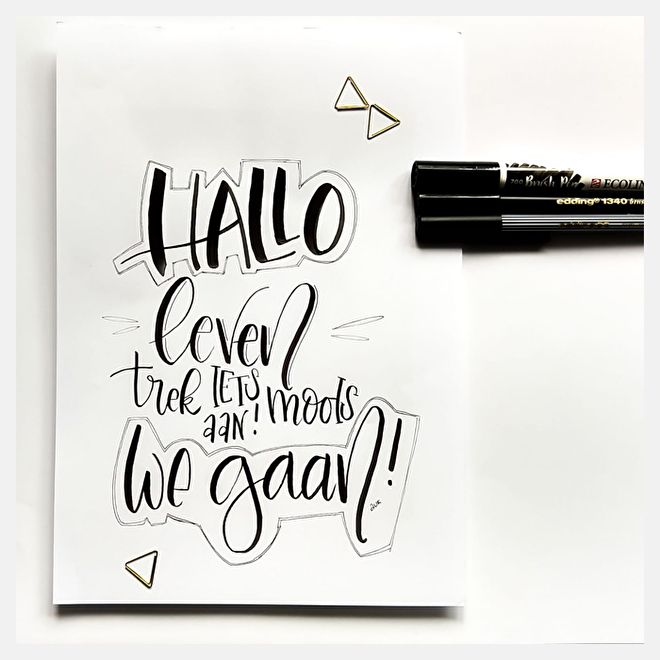 HALLO
leven
trek IETS moois
aan!
we gaan!
700 Brush Pen ECOLIN
edding® 1340